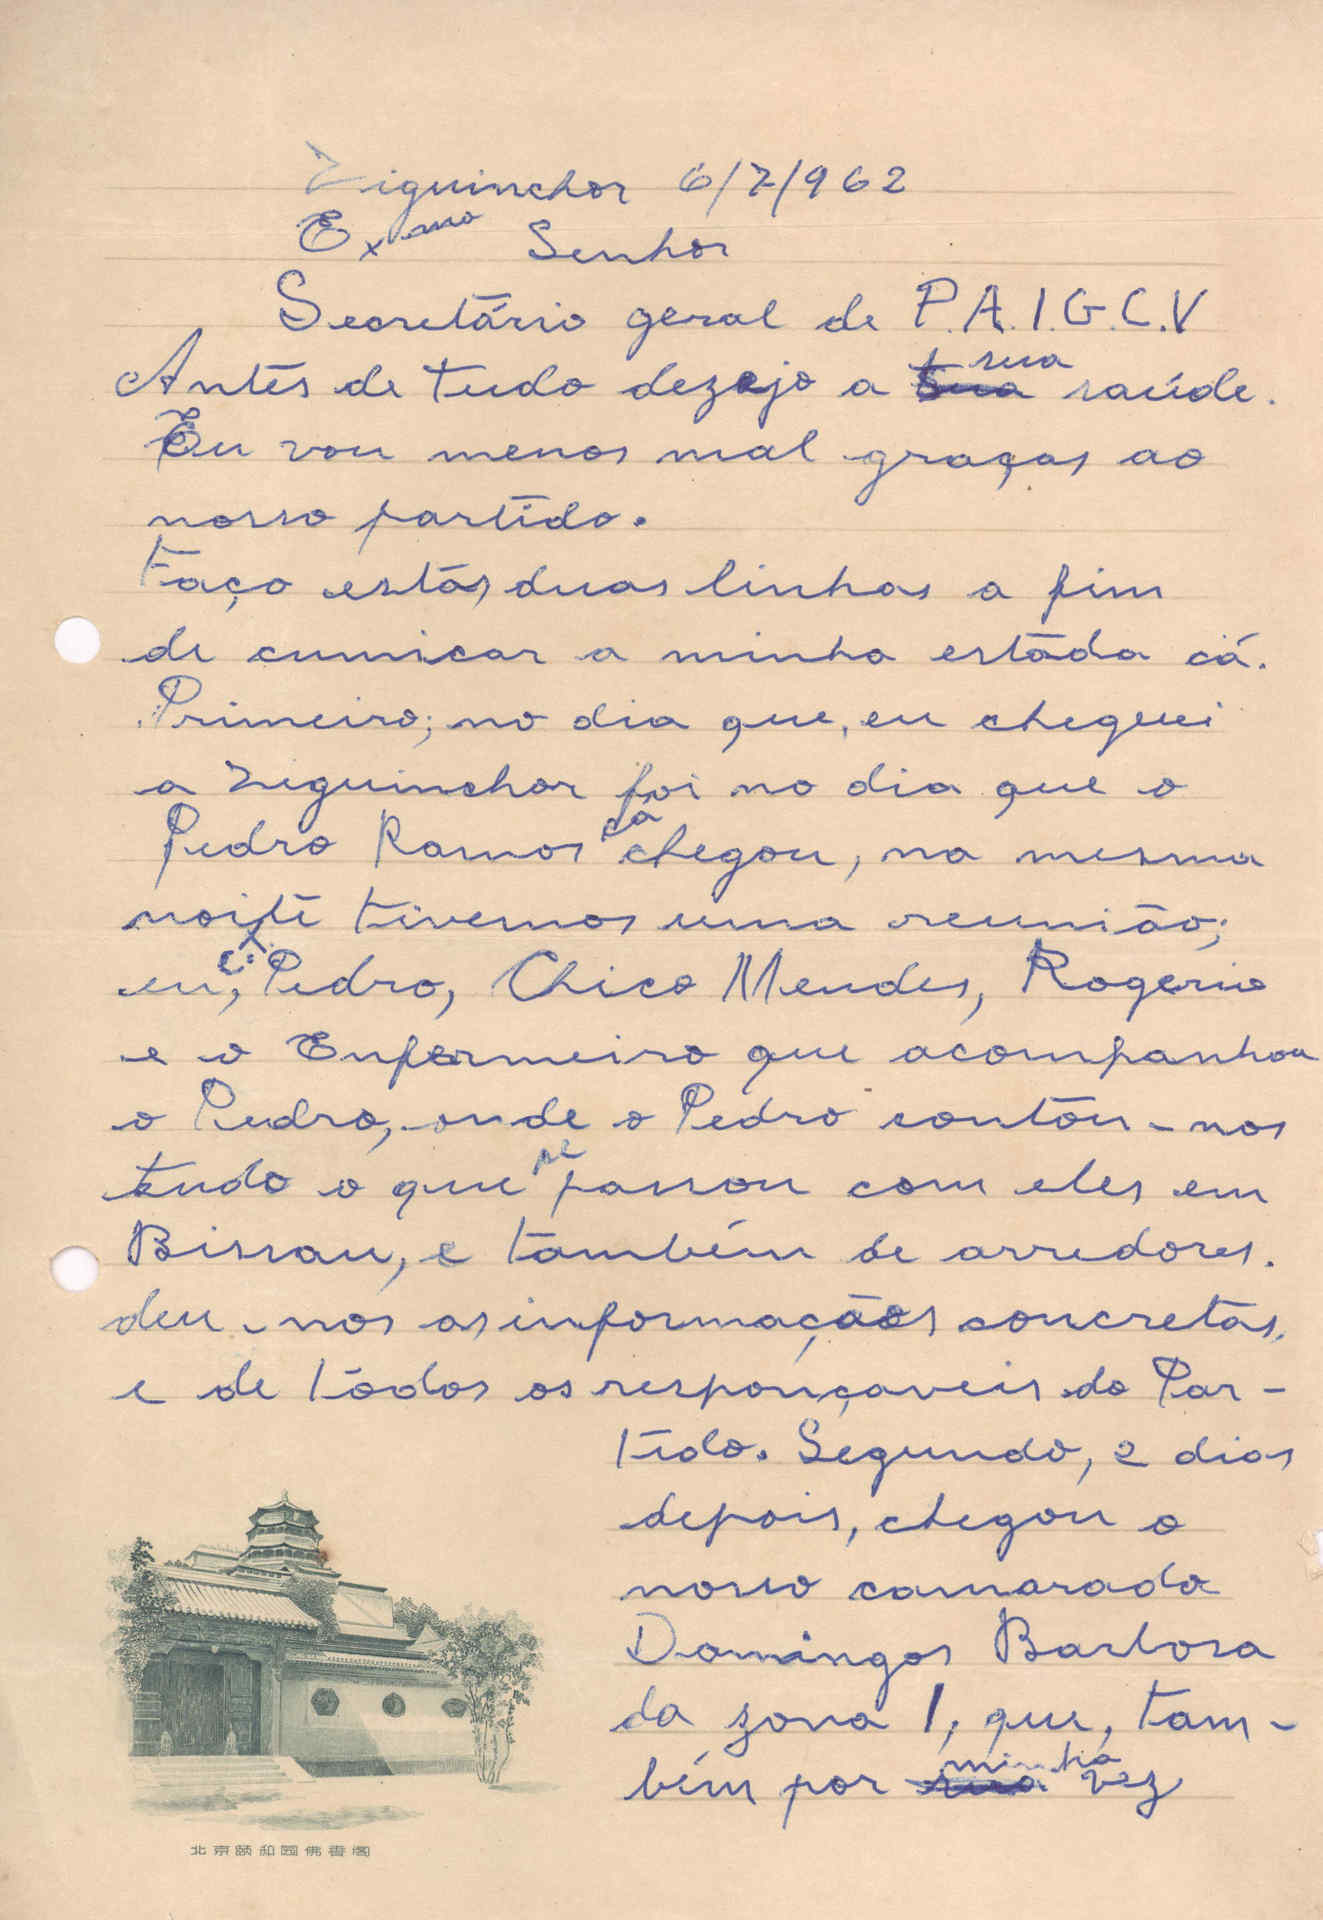 Ziguinchor 6/7/962
Exmo Senhor
Secretário geral de P.A.I.G.C.V
Antes de tudo dezejo a sua saúde.
Eu vou menos mal graças ao
nosso partido.
Faço estás duas linhas a fim
de cumicar a minha estáda cá.
Primeiro; no dia que, eu cheguei
a Ziguinchor foi no dia que o
Pedro Ramos cá chegou, na mesma
noite tivemos uma reunião;
eu, Pedro, Chico Mendes, Rogerio
e o Enfermeiro que acompanhou
o Pedro, onde o Pedro contou-nos
tudo o que se passou com eles em
Bissau, e também de arredores.
deu-nos as informações concretas,
e de tódos os responçaveis do Par-
tido. Segundo, 2 dias
depois, chegou o
nosso camarada
Domingos Barbosa
da zona 1, que, tam-
bém por minha vez
北京颐和园佛香阁